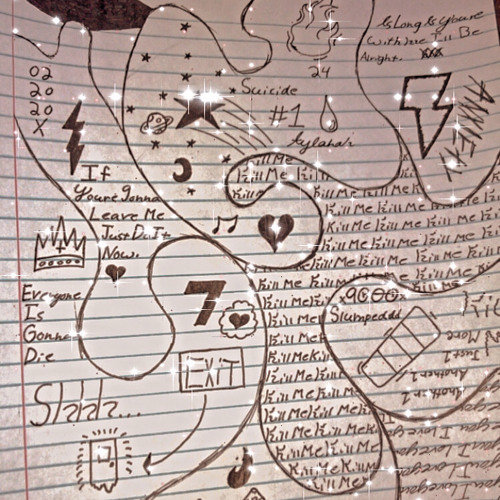 As Long As You're
With me I'll Be
Alright. XXX
24
02
20
20
X
Suicide
#1
ANXIETY
If
You're Gonna
Leave Me
Just Do It
Now.
Kill Me
Kill Me Kill Me
Kill Me
Kill Me Kill Me Kill Me
Kill Me Kill Me Kill Me
Kill Me Kill Me Kill Me
Kill Me Kill Me Kill Me
Kill Me Kill Me Kill Me
Kill Me Kill Me Kill Me
Everyone
Is
Gonna
Die
7
Slumpeddd
EXIT
Shhh...
Kill Me Kill Me
Kill Me Kill Me
Kill Me Kill Me
Kill Me Kill Me
Kill Me Kill Me
Kill Me Kill Me
Kill Me Kill Me
Kill Me Kill Me
Kill Me Kill Me
Kill Me
Just 1
More
Another 1
Another 1
I love you
I love you
I love you